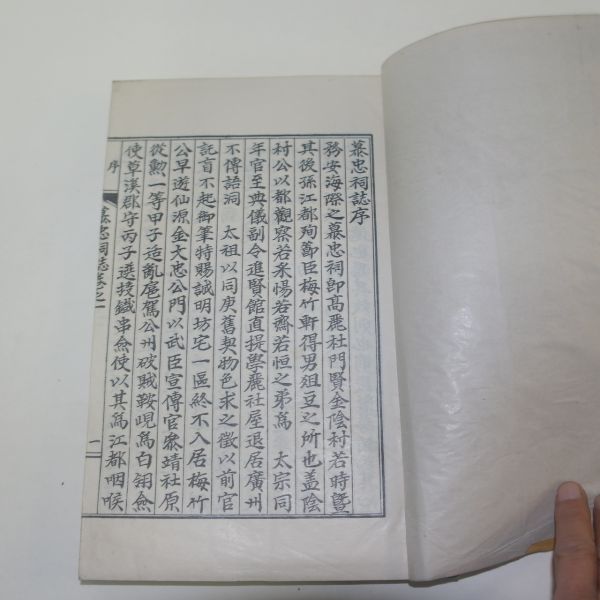 慕忠祠誌序
務安海際之慕忠祠卽高麗杜門賢金陰村若時曁
其後孫江都殉節臣梅竹軒得男俎豆之所也盖陰
村公以都觀察若釆惕若齋若恒之弟爲 太宗同
年官至典儀副令進賢館直提學麗社屋退居廣州
不傳語洞 太祖以同庚舊契物色求之徵以前官
託盲不起御筆特賜誠明坊宅一區終不入居梅竹
公早遊仙源金大忠公門以武臣宣傳官叅靖社原
從勳一等甲子适亂扈駕公州破賊鞍峴爲白翎僉
使草溪郡守丙子選授鐵串僉使以其爲江都咽喉
序
慕忠祠誌卷之一
一